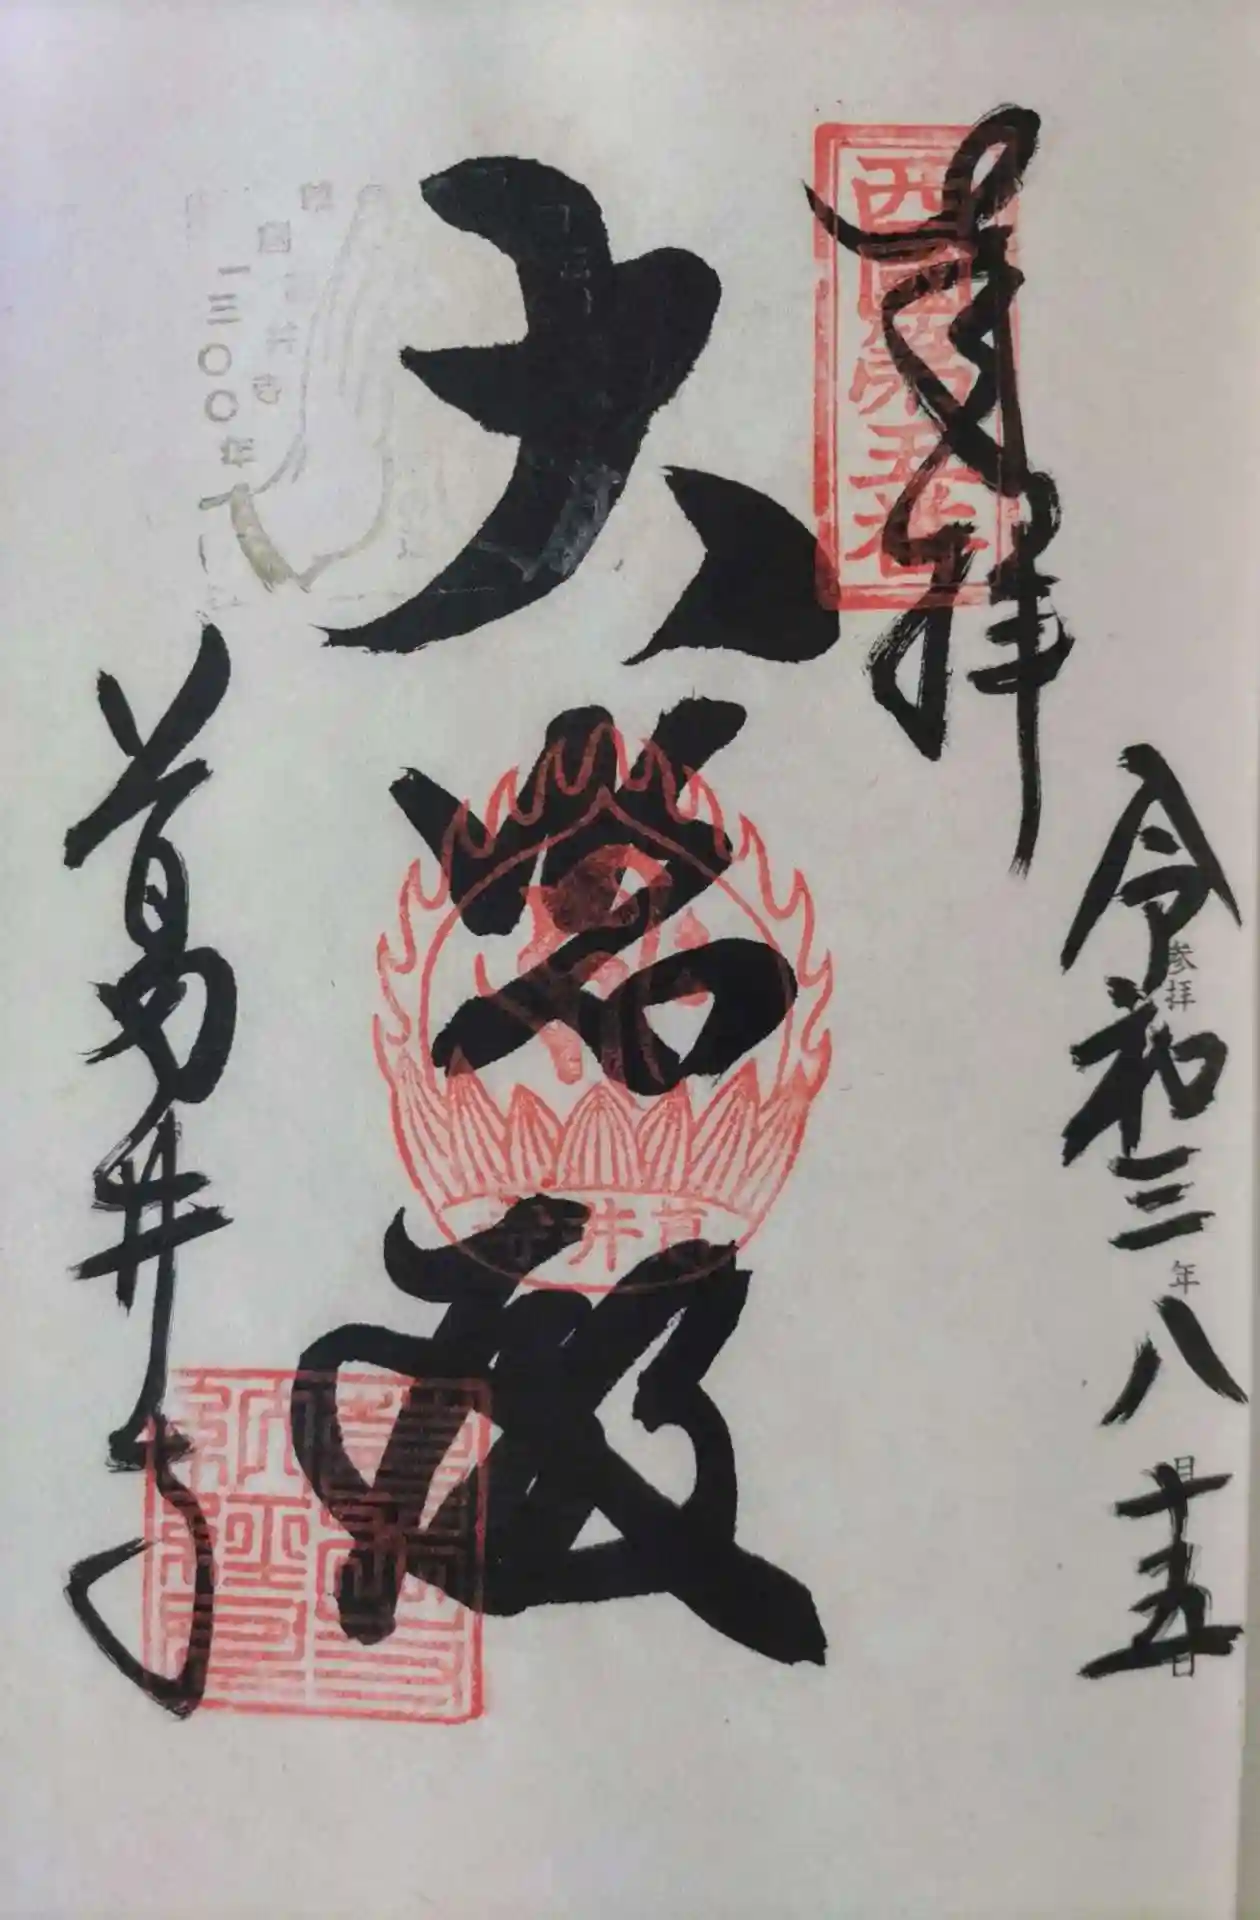 奉拝
西國第五番
令和三年八月十五日
参拝
大悲殿
葛井寺
葛井寺
一三〇〇年